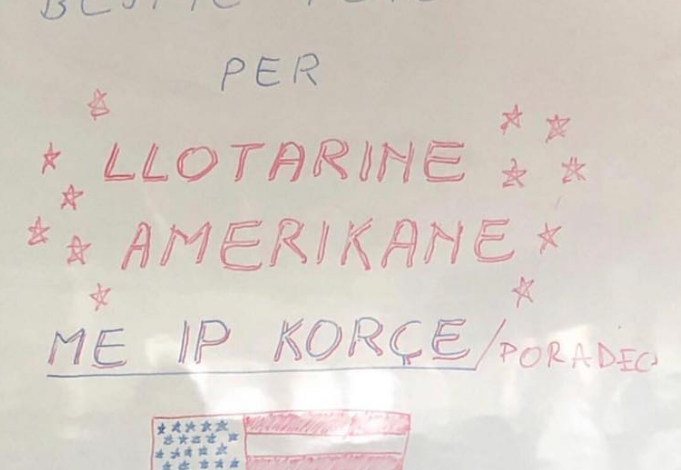 PER
LLOTARINE
AMERIKANE
ME IP KORÇE/PORADEC